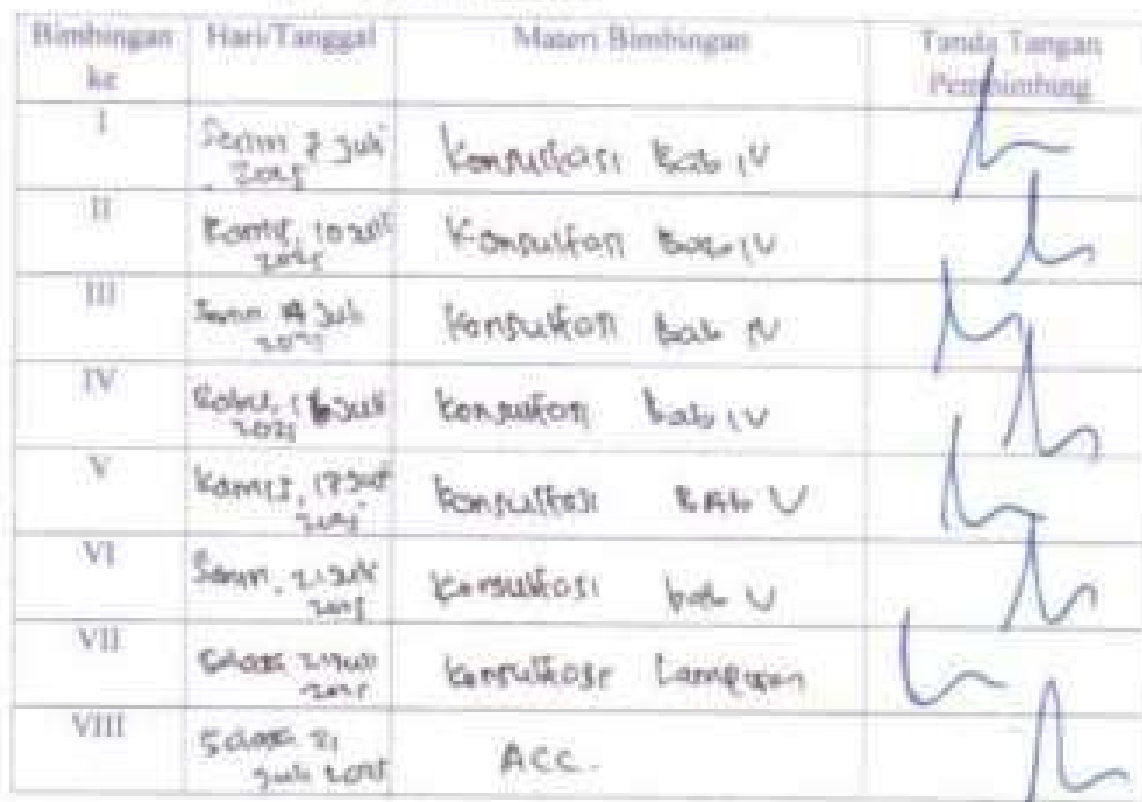 Bimbingan ke
Hari/Tanggal
Materi Bimbingan
Tanda Tangan Pembimbing
I
Senin 7 Juli
2025
Konsultasi Bab IV
II
Kamis, 10 Juli
2025
Konsultasi Bab IV
III
Senin 14 Juli
2025
Konsultasi Bab IV
IV
Rabu, 16 Juli
2025
Konsultasi Bab IV
V
Kamis, 17 Juli
2025
Konsultasi BAb V
VI
Senin, 21 Juli
2025
Konsultasi bab V
VII
Selasa Juli
2025
Konsultasi Lampiran
VIII
Selasa
Juli 2025
ACC.